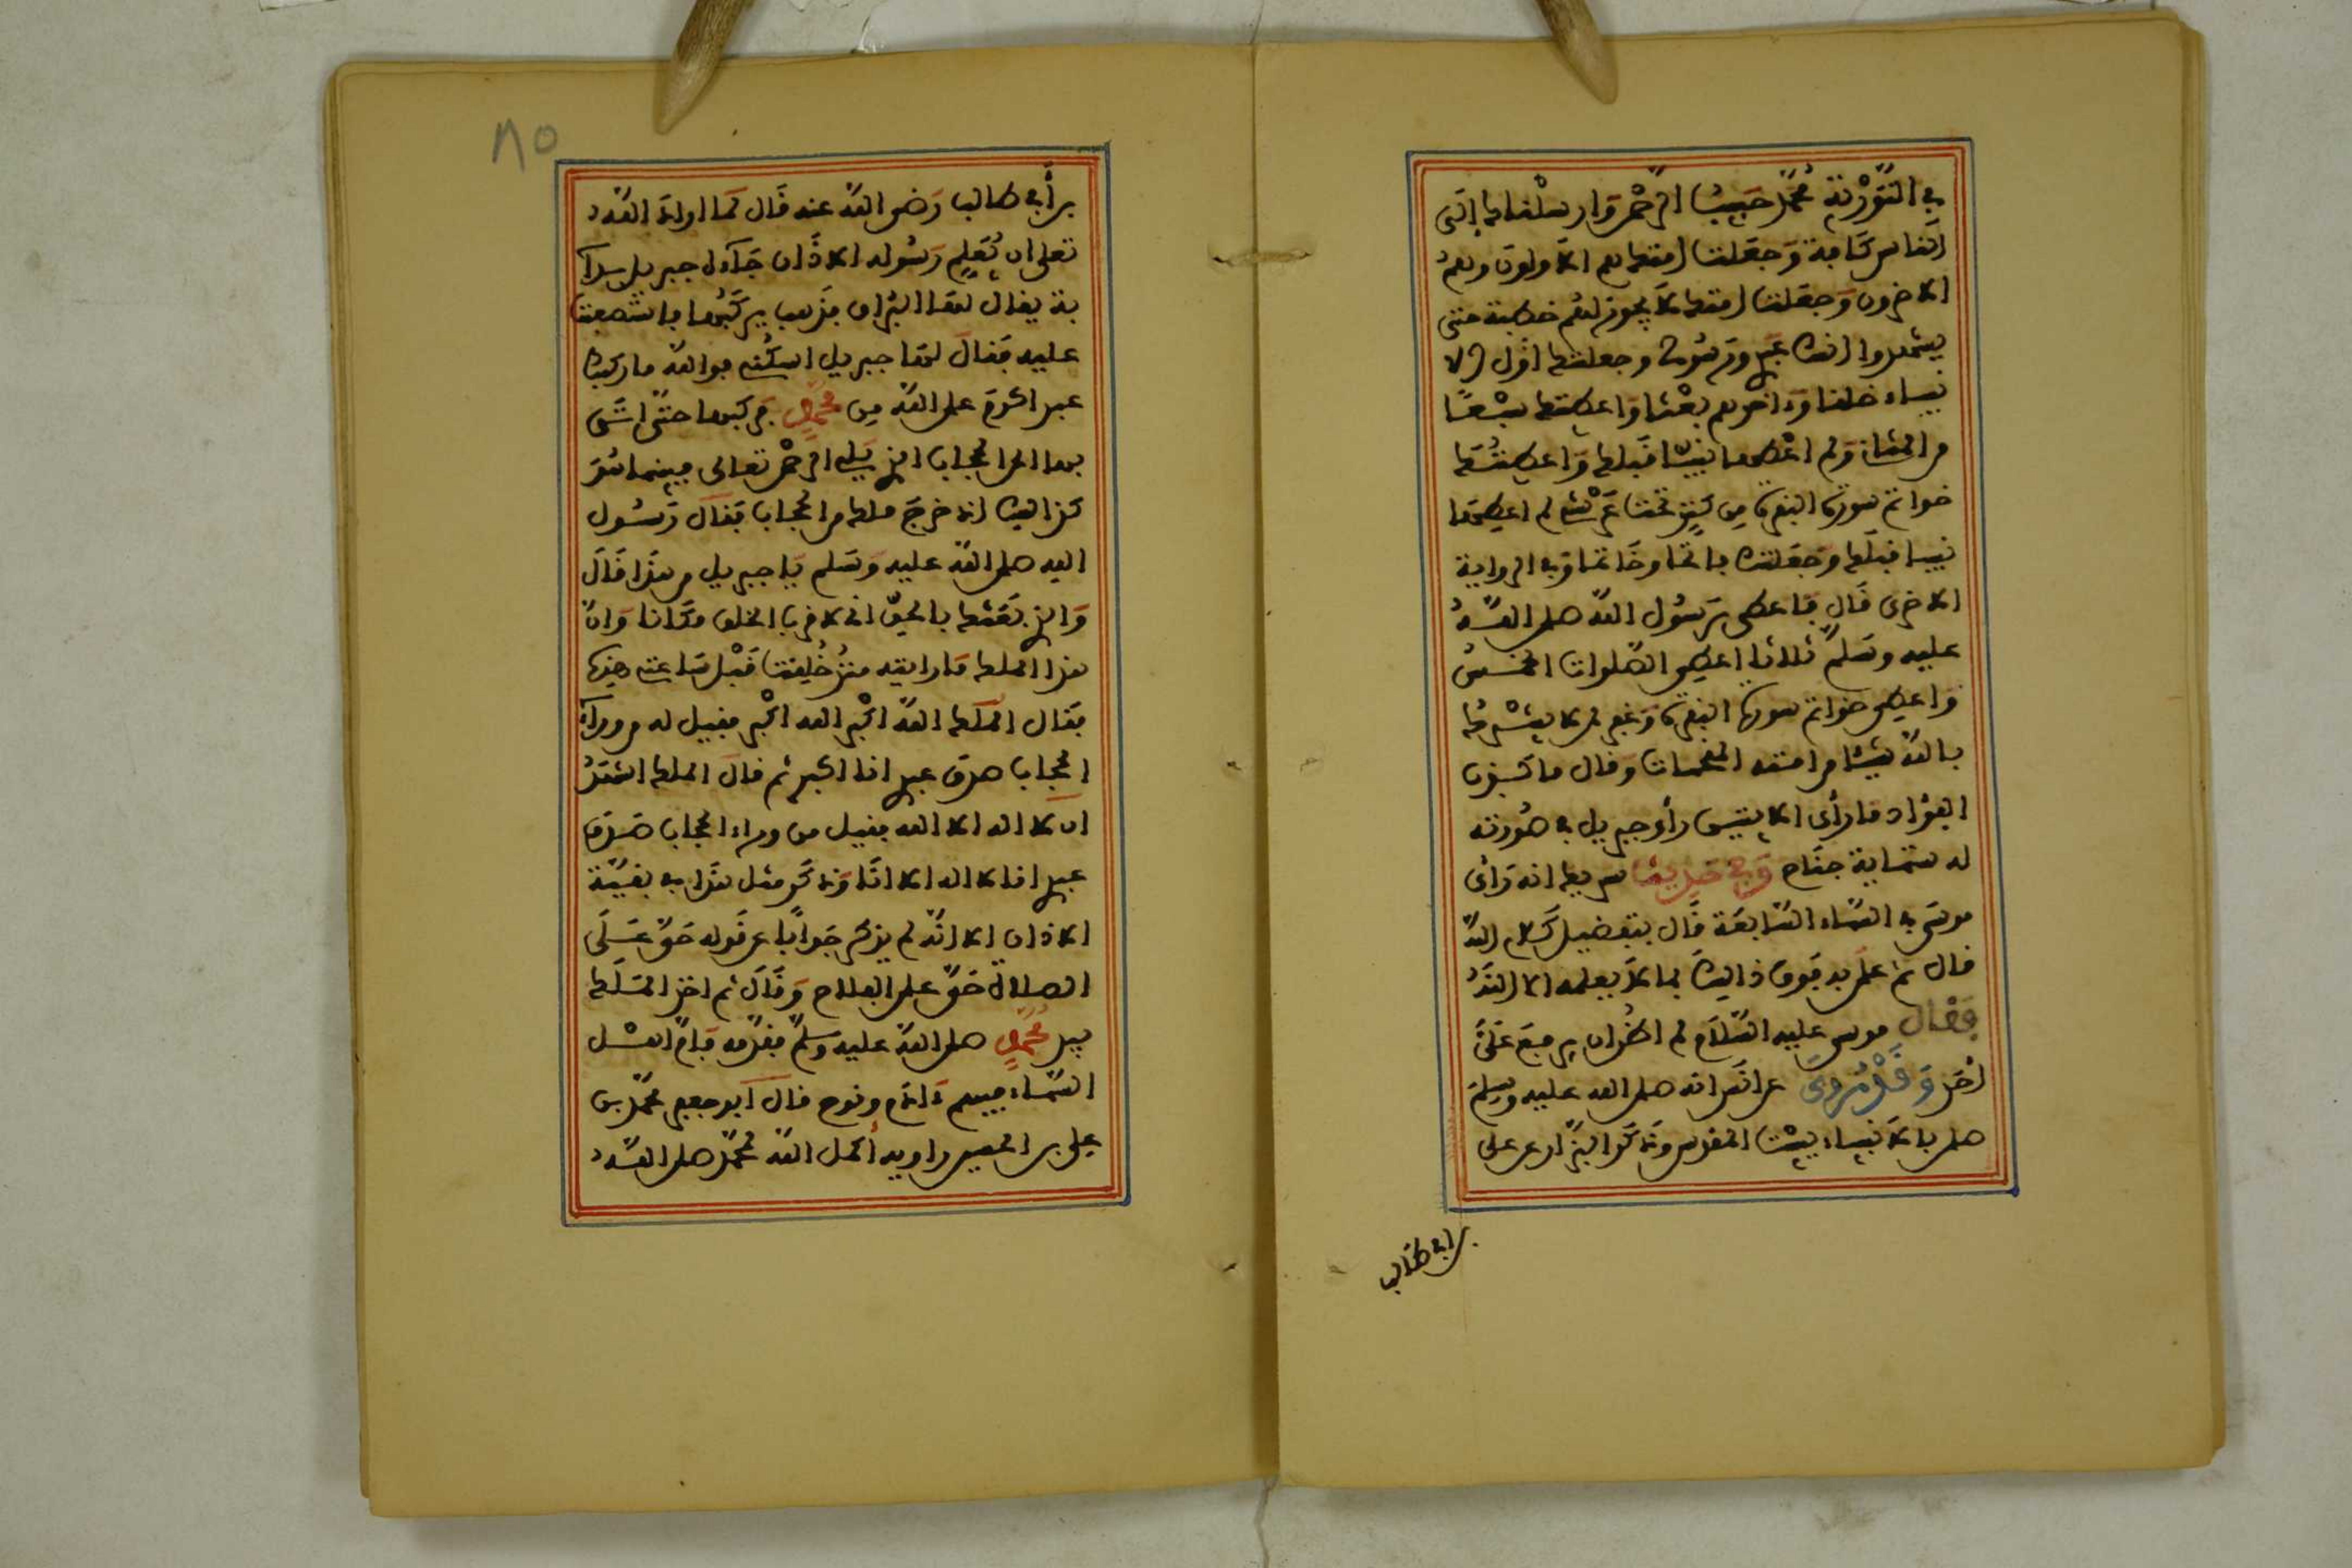 في التورية محمد حبيب الرحمن وارسلناك الى
الناس كافة وجعلت امتك هم الاولون وهم
الاخرون وجعلت امتك لا يجوز لهم خطبة حتى
يشهدوا انك عبدي ورسولي وجعلتك اول الا
نبياء خلقا وءاخرهم بعثا واعطيتك سبعا
من المثاني ولم اعطها نبيئا قبلك واعطيتك
خواتم سورة البقرة من كنز تحت عرشي لم اعطها
نبيا قبلك وجعلتك فاتحا وخاتما وفي الرواية
الاخرى قال فاعطي رسول الله صلى الله
عليه وسلم ثلاثا اعطي الصلوات الخمس
واعطي خواتم سورة البقرة وغفر لمن لا يشرك
بالله شيئا من امته المقحمات وقال ما كذب
الفؤاد ما رأى الايتين رأى جبريل في صورته
له ستماية جناح وفي حديث شريك انه رأى
موسى في السماء السابعة قال بتفضيل كلام الله
قال ثم علي به فوق ذلك بما لا يعلمه الا الله
فقال موسى عليه السلام لم اظن ان يرفع علي
احد وقد روى عن انس انه صلى الله عليه وسلم
صلى بالانبياء ببيت المقدس وذكر البزار عن علي
بن ابي طالب
٨٥
بن أبي طالب رضي الله عنه قال لما اراد الله
تعلى ان يعلم رسوله الاذان جاءه جبريل بدا
بة يقال لها البراق فذهب يركبها فاستصعبت
عليه فقال لها جبريل اسكني فوالله ما ركبك
عبد اكرم على الله من محمد فركبها حتى اتى
بها الى الحجاب الذي يلي الرحمن تعالى فبينما هو
كذلك اذ خرج ملك من الحجاب فقال رسول
الله صلى الله عليه وسلم يا جبريل من هذا قال
والذي بعثك بالحق اني لاقرب الخلق مكانا وان
هذا الملك ما رايته منذ خلقت قبل ساعتي هذه
فقال الملك الله اكبر الله اكبر فقيل له من وراء
الحجاب صدق عبدي انا اكبر ثم قال الملك اشهد
ان لا اله الا الله فقيل من وراء الحجاب صدق
عبدي انا لا اله الا انا وذكر مثل هذا في بقية
الاذان الا انه لم يذكر جوابا عن قوله حي على
الصلاة حي على الفلاح وقال ثم اخذ الملك
بيد محمد صلى الله عليه وسلم فقدمه فام اهل
السماء فيهم ءادم ونوح قال ابو جعفر محمد بن
علي بن الحسين راويه أكمل الله لمحمد صلى الله